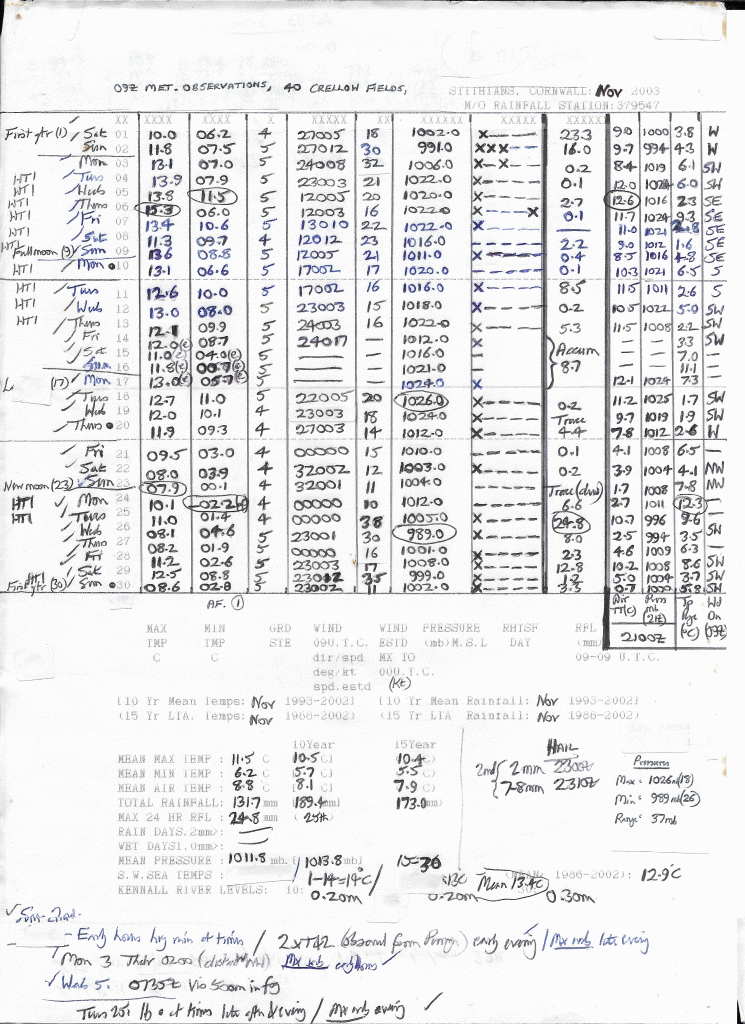 09Z MET. OBSERVATIONS, 40 CRELLOW FIELDS, STITHIANS, CORNWALL: Nov 2003
M/O RAINFALL STATION: 379547
XX XXXX XXXX X XXXXX XX XXXXXX XXXXX XXXXX
First qtr (1) Sat 01 10.0 06.2 4 27005 18 1002.0 x---- 23.3 9.0 1000 3.8 W
Sun 02 11.8 07.5 5 27012 30 991.0 xxx-- 16.0 9.7 994 4.3 W
Mon 03 13.1 07.0 5 24008 32 1006.0 x---- 0.2 8.4 1019 6.1 SW
HT1 Tues 04 13.9 07.9 5 23003 21 1022.0 x---- 0.1 12.0 1024 6.0 SW
HT1 Web 05 13.8 11.5 5 12005 20 1020.0 x---- 2.7 12.6 1016 2.3 SE
HT1 Thurs 06 15.3 06.0 5 12003 16 1022.0 x---x 0.1 11.7 1024 9.3 SE
HT1 Fri 07 13.4 10.6 5 13010 22 1022.0 x---- — 11.0 1021 2.8 SE
HT1 Sat 08 11.3 09.7 4 12012 23 1016.0 x---- 2.2 9.0 1012 1.6 SE
Full moon (9) Sun 09 13.6 08.8 5 12005 21 1011.0 x---- 0.4 8.5 1016 4.8 SE
HT1 Mon 10 13.1 06.6 5 17002 17 1020.0 x---- 0.1 10.3 1021 6.5 S
HT1 Tues 11 12.6 10.0 5 17002 16 1016.0 x---- 8.5 11.5 1011 2.6 S
HT1 Wub 12 13.0 08.0 5 23003 15 1018.0 x---- 0.2 10.5 1022 5.0 SW
HT1 Thurs 13 12.1 09.9 5 24003 16 1022.0 x---- 5.3 11.5 1008 2.2 SW
Fri 14 12.0(e) 08.7(e) 5 24017 — 1012.0 x — — 3.3 SW
Sat 15 11.0(e) 04.0(e) 5 — — 1016.0 — Accum — — 7.0 —
Sun 16 11.8(e) 00.7(e) 5 — — 1021.0 — 8.7 — — 11.1 —
L (17) Mon 17 13.0(e) 05.7(e) 5 — — 1024.0 x 12.1 1024 7.3 —
Tus 18 12.7 11.0 5 22005 20 1026.0 x---- 0.2 11.2 1025 1.7 SW
Wub 19 12.0 10.1 4 23003 18 1024.0 x---- Trace 9.7 1019 1.9 SW
Thurs 20 11.9 09.3 4 27003 14 1012.0 x---- 4.4 7.8 1012 2.6 W
Fri 21 09.5 03.0 4 00000 15 1010.0 x---- 0.1 4.1 1008 6.5 —
Sat 22 08.0 03.9 4 32002 12 1003.0 x---- 0.2 3.9 1004 4.1 NW
New moon (23) Sun 23 07.9 00.1 4 32001 11 1004.0 ---- Trace (dew) 1.7 1008 7.8 NW
HT1 Mon 24 10.1 -02.2 4 00000 10 1012.0 ---- 6.6 2.7 1011 12.3 —
HT1 Tues 25 11.0 01.4 4 00000 38 1005.0 x---- 24.8 10.7 996 9.6
Wub 26 08.1 04.6 5 23001 30 989.0 x---- 8.0 2.5 994 3.5 SW
Thu 27 08.2 01.9 5 00000 16 1001.0 x---- 2.3 4.6 1009 6.3 —
Fri 28 11.2 02.6 5 23003 17 1008.0 x---- 12.8 10.2 1008 8.6 SW
HT1 Sat 29 12.5 08.8 5 23012 35 999.0 x---- 5.0 1004 3.7 SW
First qtr (30) Sun 30 08.6 02.8 5 23002 11 1002.0 x---- 3.5 0.7 1000 5.8 SW
AF. 1
MAX MIN GRD WIND WIND PRESSURE RHTSF RFL
TMP TMP STE 09U.T.C. ESTD (mb)M.S.L DAY (mm)
C C dir/spd MX TO 09-09 U.T.C.
deg/kt 00U.T.C.
spd.estd (Kt)
Air TT(C) Press mb (21Z) (°C) Wd Dn (09Z)
2100Z
[10 Yr Mean Temps: Nov 1993-2002] [10 Yr Mean Rainfall: Nov 1993-2002]
(15 Yr LTA. Temps: Nov 1988-2002) (15 Yr LTA Rainfall: Nov 1988-2002)
10Year 15Year
MEAN MAX TEMP : 11.5 C 10.5 C] 10.4 C)
MEAN MIN TEMP : 6.2 C 5.7 C] 5.5 C)
MEAN AIR TEMP : 8.8 C [8.1 C] 7.9 C)
TOTAL RAINFALL: 131.7 mm 189.4 mm] 173.0 mm)
MAX 24 HR RFL : 24.8 mm ( 25th)
RAIN DAYS.2mm>: —
WET DAYS1.0mm>: —
MEAN PRESSURE : 1011.8 mb. [1013.8 mb] 15=30
S.W.SEA TEMPS : 1-14=14°C/ 13°C Mean 13.4C (MEAN. 1986-2002): 12.9°C
KENNALL RIVER LEVELS: 10: 0.20m 0.20m 30: 0.30m
HAIL
2nd { 2mm 2300Z
7-8mm 2310Z
Pressures
Max: 1026mb(18)
Min: 989mb(26)
Range: 37mb
Sun 2nd
- Early hours hvy min at times / 2xTL2 (observed from Penryn) early evening / Mx mb late evening
Mon 3 Thdr 0200 (distant NW) Mx mb early hours
Web 5. 0735Z vis 500m in fog
Tues 25. lb at times late aftn & evening / Mx mb evening